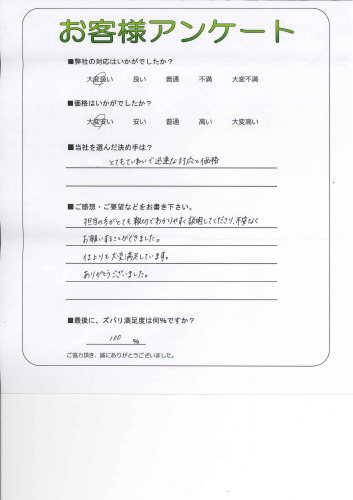 お客様アンケート
■弊社の対応はいかがでしたか？
大変良い 良い 普通 不満 大変不満
■価格はいかがでしたか？
大変安い 安い 普通 高い 大変高い
■当社を選んだ決め手は？
とてもていねいで迅速な対応と価格
■ご感想・ご要望などをお書き下さい。
担当の方がとても親切でわかりやすく説明してくださり、不安なく
お願いすることができました。
仕上りも大変満足しています。
ありがとうございました。
■最後に、ズバリ満足度は何%ですか？
100 %
ご協力頂き、誠にありがとうございました。